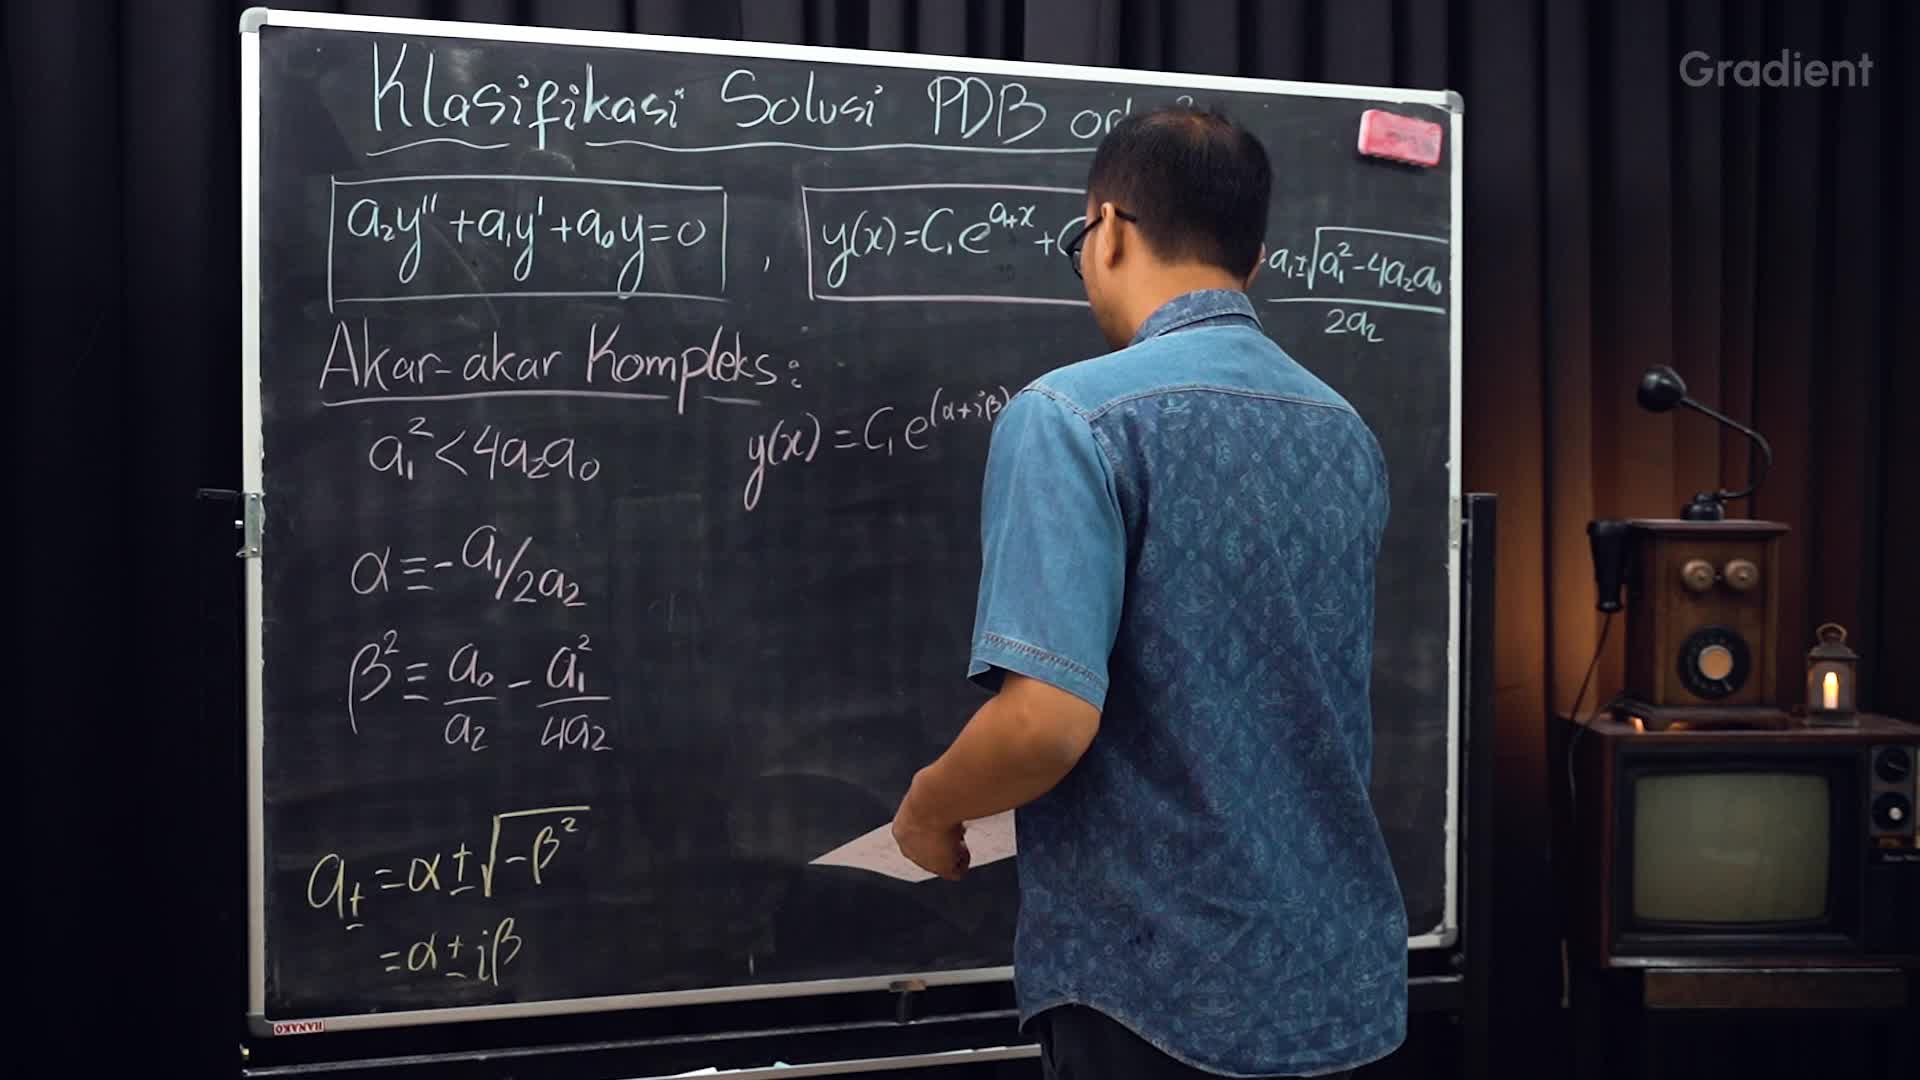 Gradient
Klasifikasi Solusi PDB
a₂y'' + a₁y' + a₀y = 0 , y(x) = C₁e^{a₊x} +
a₁ ± √(a₁² - 4a₂a₀) / 2a₂
Akar-akar Kompleks:
a₁² < 4a₂a₀
y(x) = C₁e^{(α+iβ)
α ≡ -a₁/2a₂
β² ≡ a₀/a₂ - a₁²/4a₂
a± = α ± √(-β²)
= α ± iβ
HANAKO